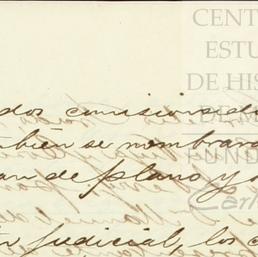 CENT
ESTU
DE HIS
DE M
FUND
Carl
dos comisionado
mbién se nombrará
an de plano y s
judicial, los c